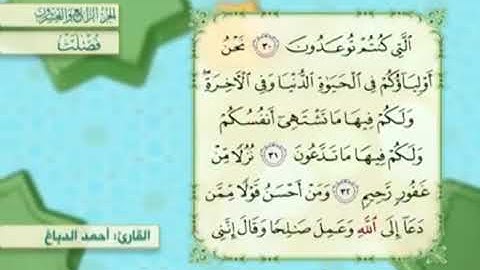 الجزء الرابع والعشرون
فُصِّلَتْ
ٱلَّتِى كُنتُمْ تُوعَدُونَ ٣٠ نَحْنُ
أَوْلِيَآؤُكُمْ فِى ٱلْحَيَوٰةِ ٱلدُّنْيَا وَفِى ٱلْأَخِرَةِ ۖ
وَلَكُمْ فِيهَا مَا تَشْتَهِىٓ أَنفُسُكُمْ
وَلَكُمْ فِيهَا مَا تَدَّعُونَ ٣١ نُزُلًا مِّنْ
غَفُورٍ رَّحِيمٍ ٣٢ وَمَنْ أَحْسَنُ قَوْلًا مِّمَّن
دَعَآ إِلَى ٱللَّهِ وَعَمِلَ صَٰلِحًا وَقَالَ إِنَّنِى
القارئ: أحمد الدباغ